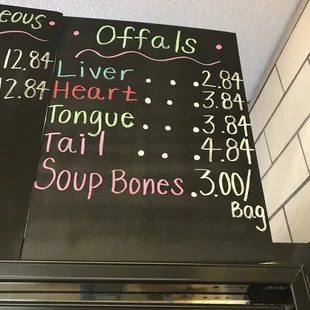 eous
12.84
12.84
Offals
Liver . . . 2.84
Heart . . . 3.84
Tongue . . . 3.84
Tail . . . 4.84
Soup Bones . 3.00/
Bag